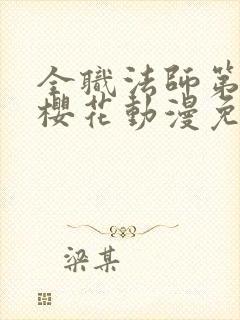 全職法師第
櫻花動漫免
梁某